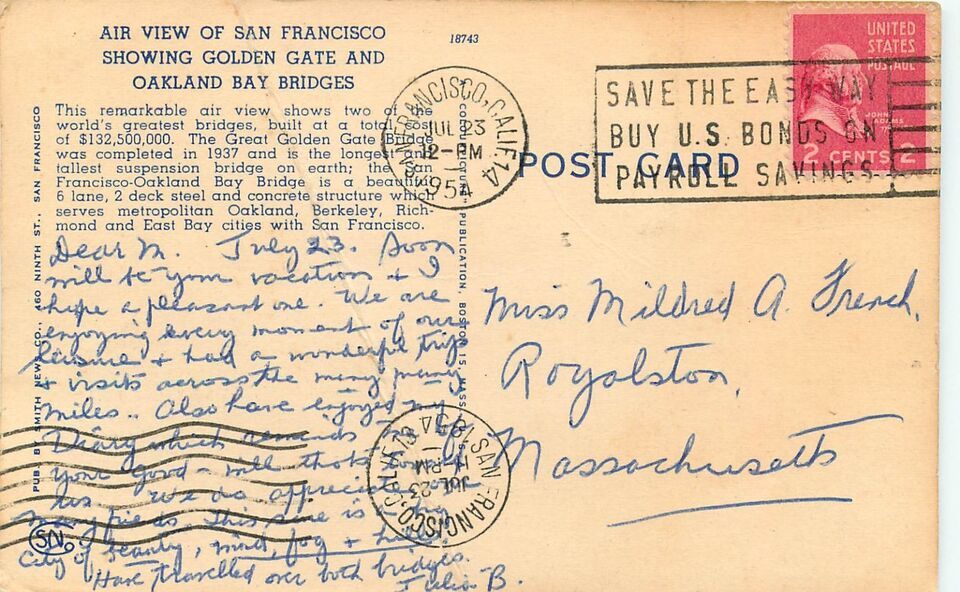 AIR VIEW OF SAN FRANCISCO
SHOWING GOLDEN GATE AND
OAKLAND BAY BRIDGES
18743
This remarkable air view shows two of the
world's greatest bridges, built at a total cost
of $132,500,000. The Great Golden Gate Bridge
was completed in 1937 and is the longest and
tallest suspension bridge on earth; the San
Francisco-Oakland Bay Bridge is a beautiful
6 lane, 2 deck steel and concrete structure which
serves metropolitan Oakland, Berkeley, Rich-
mond and East Bay cities with San Francisco.
PUB. BY SMITH NEWS CO., 460 NINTH ST., SAN FRANCISCO
PUBLICATION, BOSTON 15, MASS
SAN FRANCISCO, CALIF. 14
JUL 23
12-PM
1954
POST CARD
SAVE THE EASY WAY
BUY U.S. BONDS ON
PAYROLL SAVINGS
UNITED
STATES
POSTAGE
JOHN
ADAMS
2 CENTS 2
Dear M. July 23. Soon
will be your vacation & I
hope a pleasant one. We are
enjoying every moment of our
leisure & had a wonderful trip
& visits across the many many
miles.. Also have enjoyed my
Diary which reminds me of
your good-will thots
us We do appreciate
This sure is
City of beauty, wind, fog & hills
Have travelled over both bridges.
Julia B.
Miss Mildred A. French,
Royalston,
Massachusetts
SAN FRANCISCO, CALIF. 13
JUL 23
PM
1954
SN Co